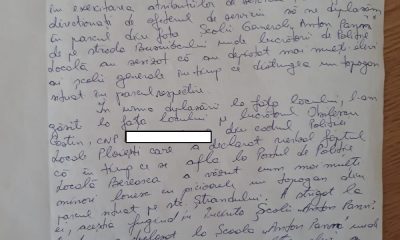 în exercitarea atribuțiilor de serviciu
direcționați de ofițerul de serviciu să ne deplasăm
în parcul din fața Școlii Generale Anton Pann,
de pe strada unde lucrători de Poliție
Locală au sesizat că au depistat mai mulți elevi
ai școlii generale în timp ce distrugea un topogan
situat în parcul respectiv.
În urma deplasării la fața locului, l-am
găsit la fața locului pe lucrătorul
Costin, CNP din cadrul Poliției
Locale Ploiești care a declarat verbal faptul
că în timp ce se afla la Postul de Poliție
Locală Bereasca a văzut cum mai mulți
minori loveau cu picioarele un topogan din
parcul situat pe str. Ștrandului. A strigat la
ei, aceștia fugind în incinta Școlii Anton Pann.
la Școala Anton Pann unde